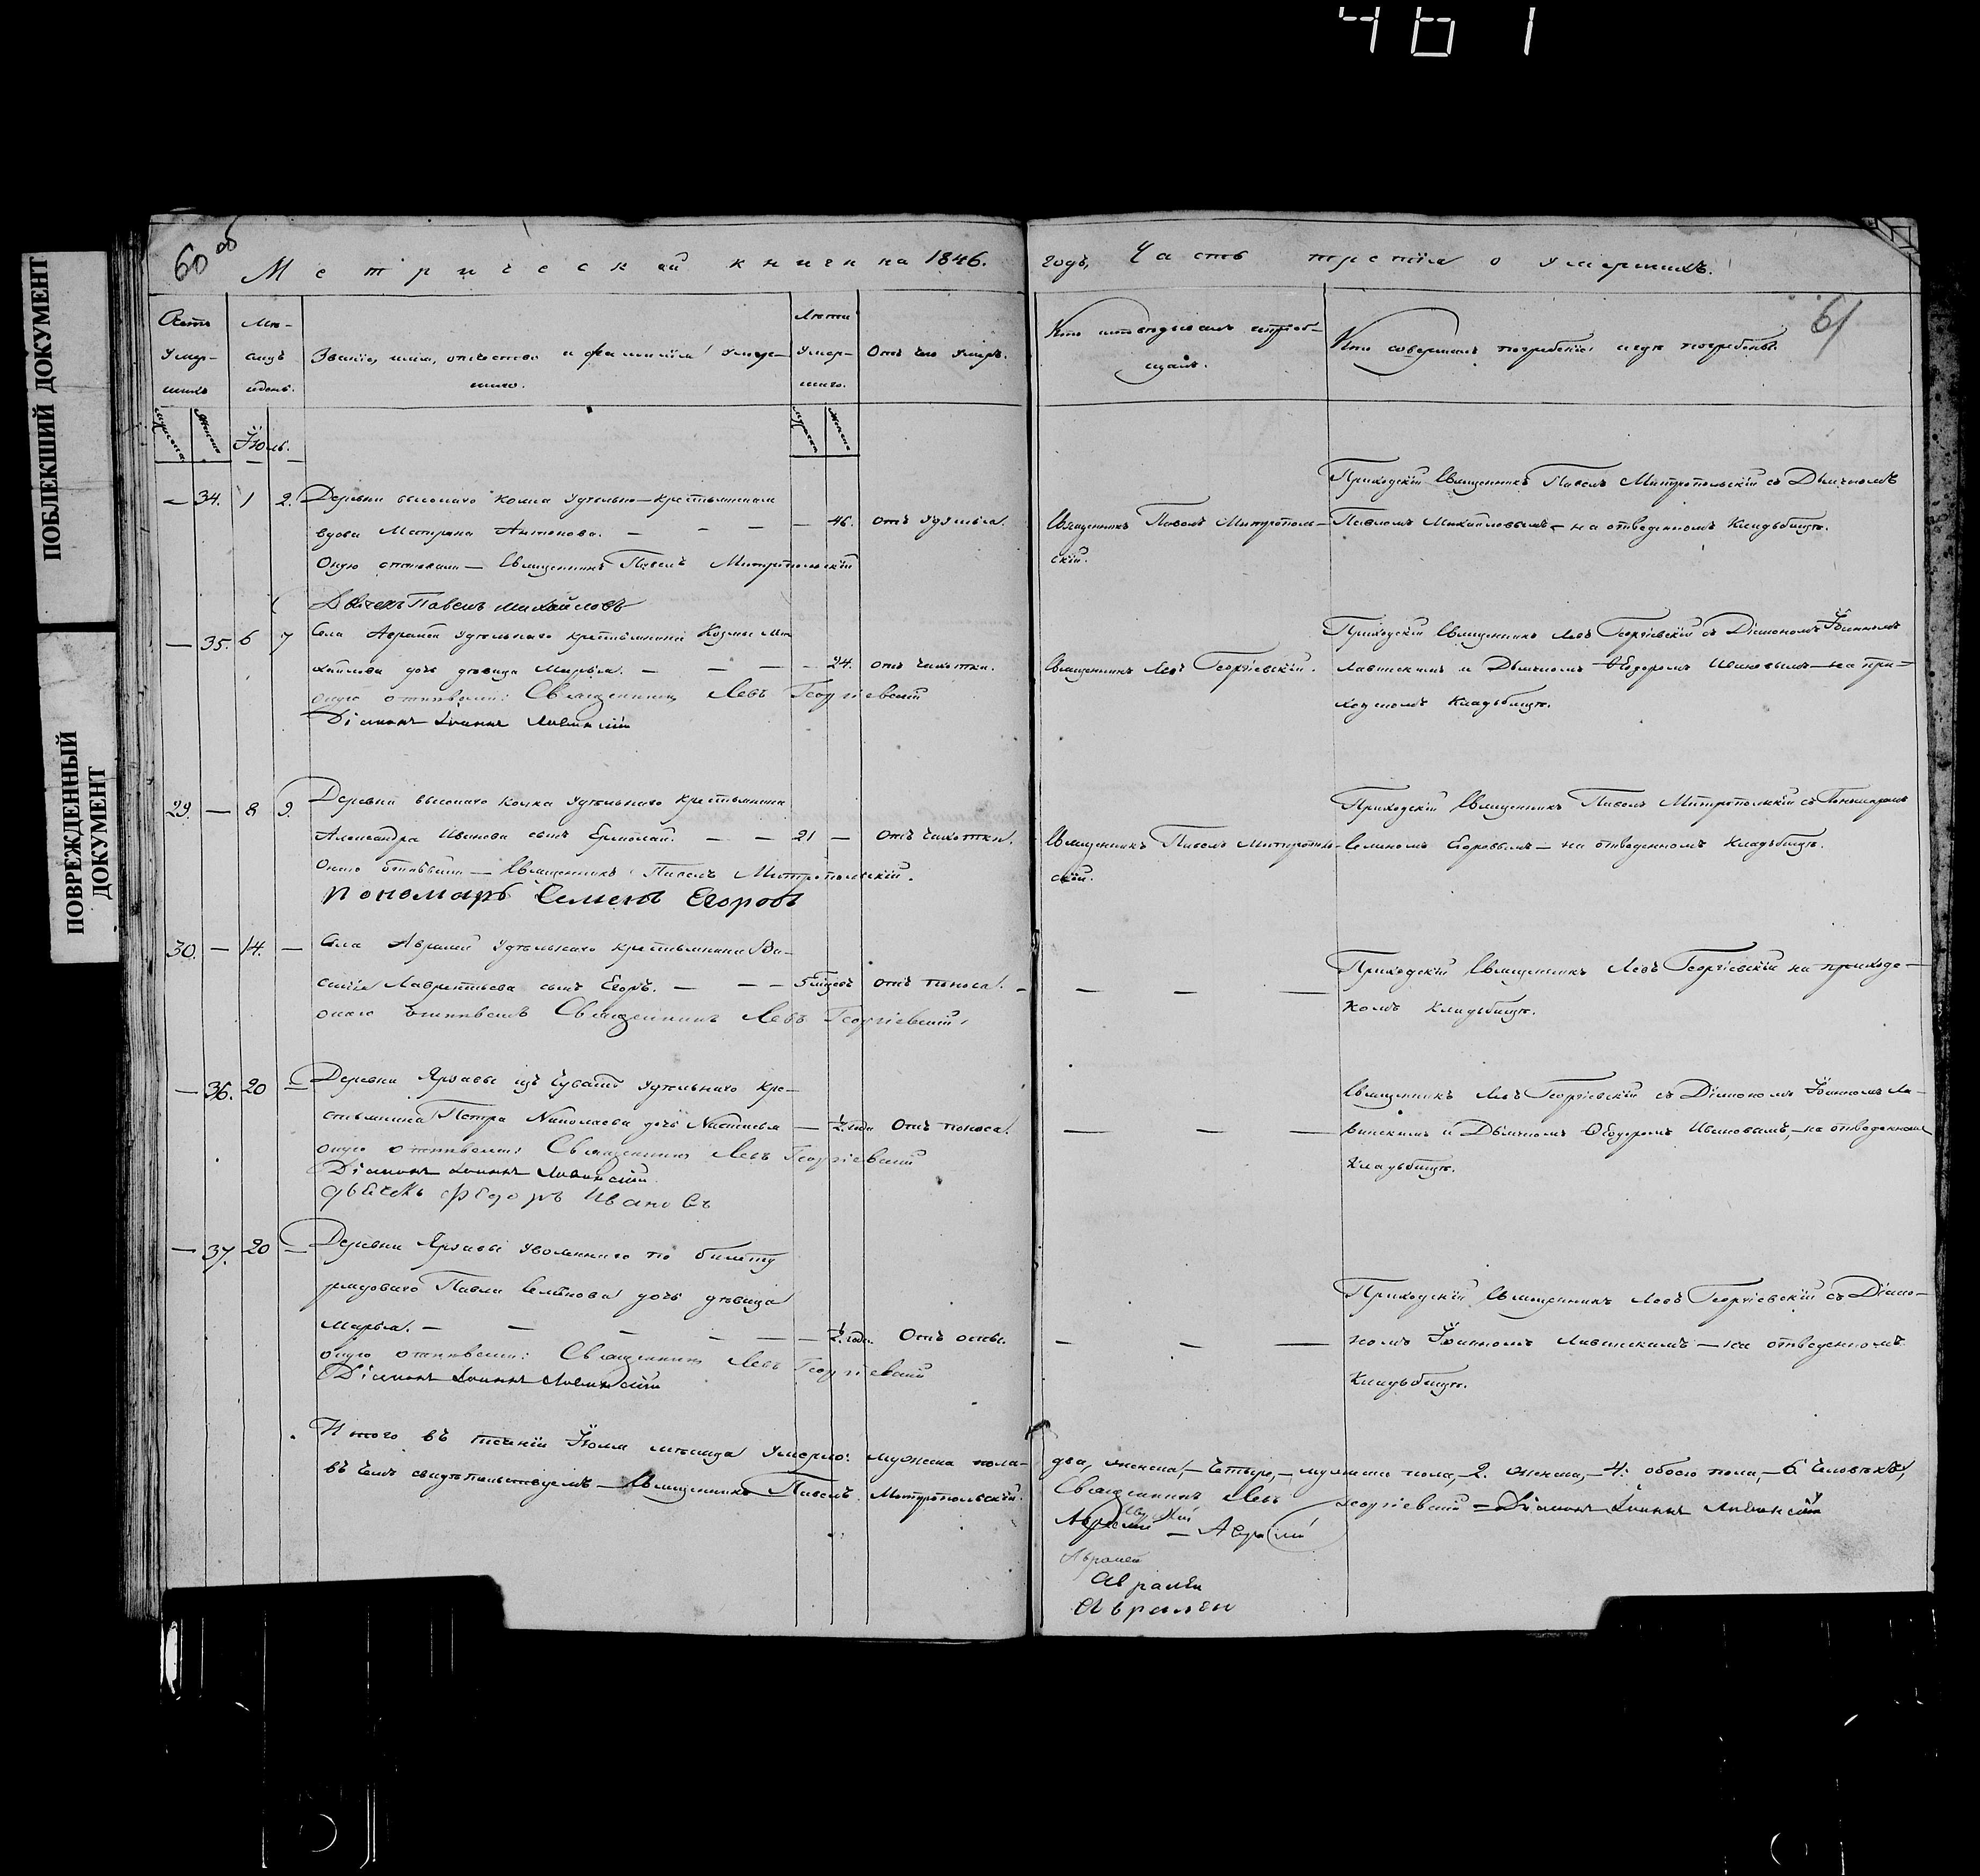 461
ПОБЛЕКШИЙ ДОКУМЕНТ
ПОВРЕЖДЕННЫЙ
ДОКУМЕНТ
60 об
Метрической книги на 1846.
годъ, Часть третія о умершихъ.
61
Счетъ
умер-
шихъ
Мѣ-
сяцъ
и день.
Званіе, имя, отчество и фамилія умер-
шаго.
Лѣта
умер-
шаго.
Отъ чего умеръ.
Кто исповѣдывалъ и пріоб-
щалъ.
Кто совершалъ погребеніе и гдѣ погребены.
Іюль.
— 34. 1 2. Деревни высокаго колка удѣльно-крестьянская
вдова Матрона Антонова. — — — — 46. отъ удушья.
Оную отпѣвали — Священникъ Павелъ Митропольскій
Дьячекъ Павелъ Михайловъ
Священникъ Павелъ Митрополь-
скій.
Приходскій Священникъ Павелъ Митропольскій съ Дьячкомъ
Павломъ Михайловымъ — на отведенномъ Кладьбищѣ.
— 35. 6 7 Села Авралей удѣльнаго крестьянина Козмы Ми-
хайлова дочь дѣвица Марья. — — — — 24. отъ чихотки.
оную отпѣвали: Священникъ Левъ Георгіевскій
Діаконъ Іоаннъ Лавинскій
Священникъ Левъ Георгіевскій.
Приходскій Священникъ Левъ Георгіевскій съ Діакономъ Іоанномъ
Лавинскимъ и Дьячкомъ Ѳеодоромъ Ивановымъ — на при-
ходскомъ Кладьбищѣ.
29. — 8 9. Деревни высокаго Колка удѣльнаго крестьянина
Александра Иванова сынъ Ермолай. — — 21 — Отъ чихотки.
Онаго отпѣвали — Священникъ Павелъ Митропольскій.
Пономарь Семенъ Егоровъ
Священникъ Павелъ Митрополь-
скій.
Приходскій Священникъ Павелъ Митропольскій съ Пономаремъ
Семеномъ Егоровымъ — на отведенномъ Кладьбищѣ.
30. — 14. — Села Авралей удѣльнаго крестьянина Ва-
силія Лаврентьева сынъ Егоръ. — — — 5 мѣсяц. отъ поноса. —
онаго отпѣвалъ Священникъ Левъ Георгіевскій.
— — —
Приходскій Священникъ Левъ Георгіевскій на приходс-
комъ Кладьбищѣ.
— 36. 20 — Деревни из Чувашъ удѣльнаго кре-
стьянина Петра Николаева дочь Настасья — ½ года Отъ поноса.
оную отпѣвали: Священникъ Левъ Георгіевскій
Діаконъ Іоаннъ Лавинскій
дьячекъ федоръ Ивановъ
— — —
Священникъ Левъ Георгіевскій съ Діакономъ Іоанномъ Ла-
винскимъ и Дьячкомъ Ѳеодоромъ Ивановымъ, — на отведенномъ
Кладьбищѣ.
— 37. 20 — Деревни уволеннаго по билету
рядоваго Павла Семенова дочь дѣвица
Марья. — — — — — — ½ года. Отъ оспы.
оную отпѣвали: Священникъ Левъ Георгіевскій
Діаконъ Іоаннъ Лавинскій
— — —
Приходскій Священникъ Левъ Георгіевскій съ Діако-
номъ Іоанномъ Лавинскимъ — на отведенномъ
Кладьбищѣ.
Итого въ теченіи Іюля мѣсяца умерло: мужеска пола —
два, женска, — четыре, — мужеска пола, — 2. женска, — 4. обоего пола, — 6. человѣкъ,
въ чемъ свидѣтельствуемъ — Священникъ Павелъ Митропольскій.
Священникъ Левъ Георгіевскій — Діаконъ Іоаннъ Лавинскій
Авралей
Авралей